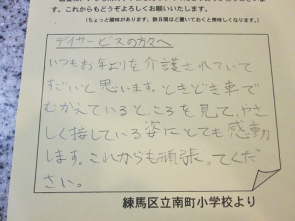 す。これからもどうぞよろしくお願いいたします。
(ちょっと酸味があります。数日間ほど置いておくと美味しくなります。)
デイサービスの方々へ
いつもお年よりを介護されていて
すごいと思います。ときどき車で
むかえているところを見て、やさ
しく接している姿にとても感動
します。これからも頑張ってくだ
さい。
練馬区立南町小学校より